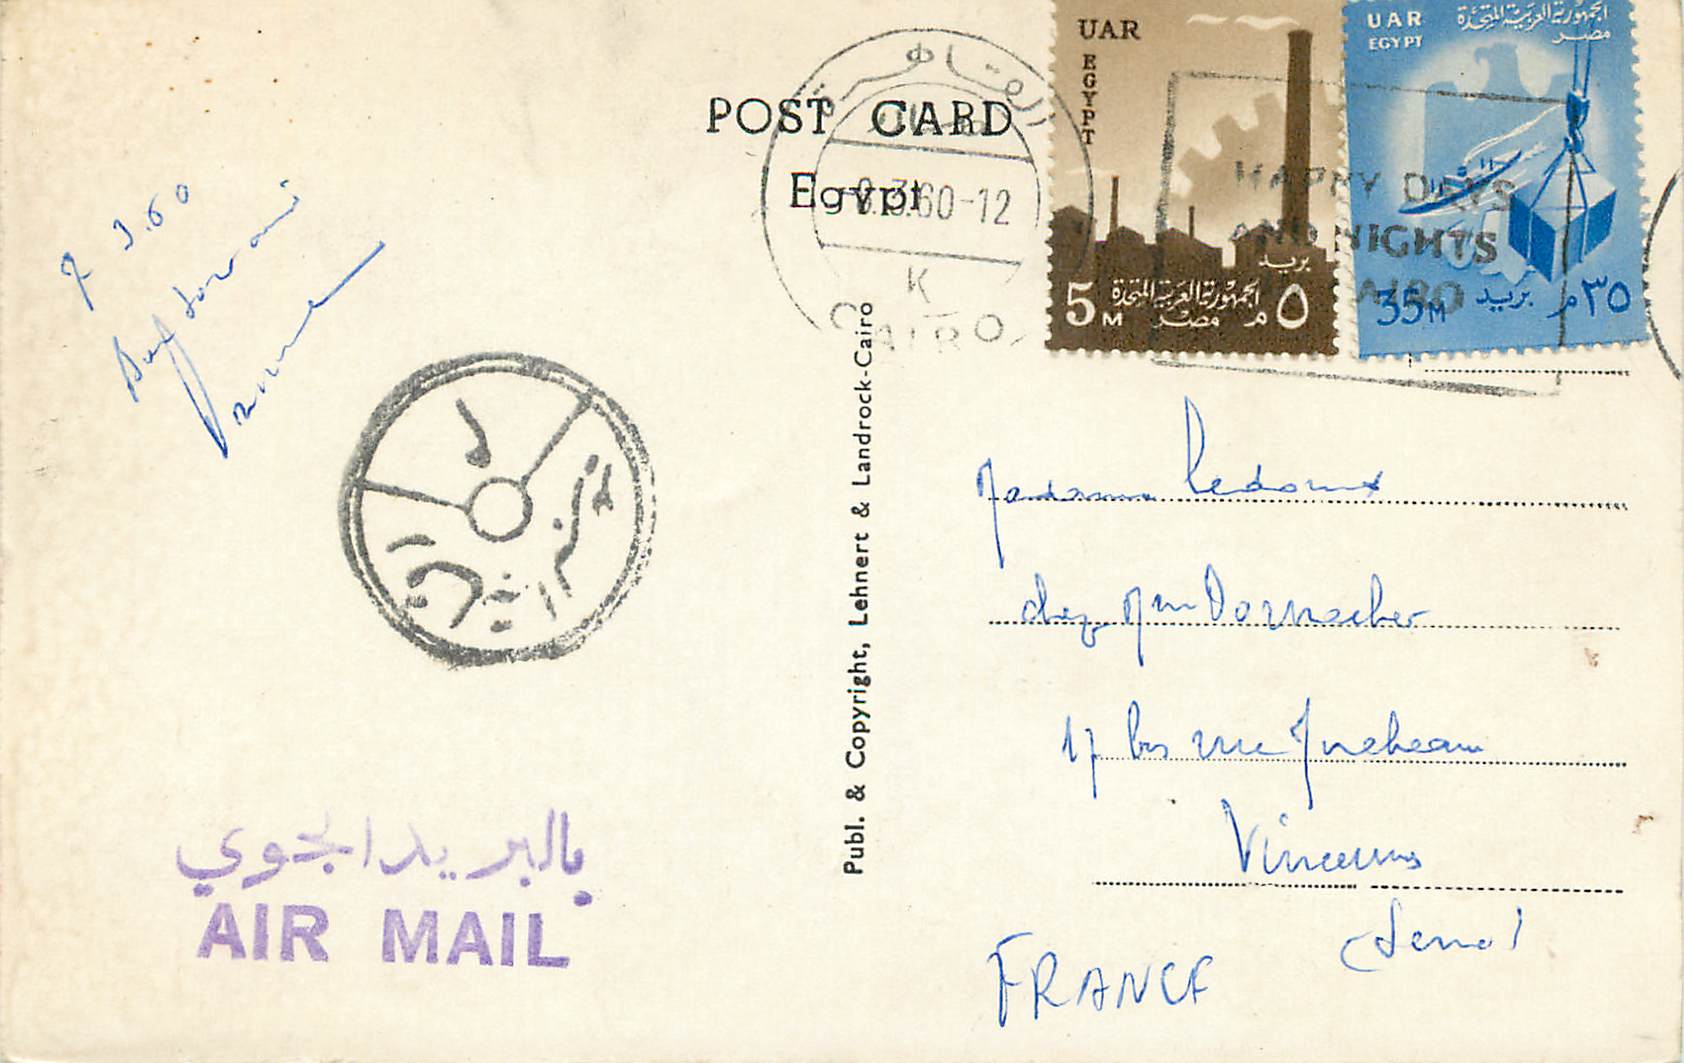 POST CARD
Egypt
القاهرة
8.3.60-12
K
CAIRO
UAR
EGYPT
بريد
الجمهورية العربية المتحدة
5M مصر ٥م
UAR الجمهورية العربية المتحدة
EGYPT مصر
35M بريد ٣٥م
HAPPY DAYS
AND NIGHTS
CAIRO
7 3.60
Publ. & Copyright, Lehnert & Landrock-Cairo
Madame Ledoux
chez Mme Dornacher
17 bis rue
Vincennes
(Seine)
FRANCE
بالبريد الجوي
AIR MAIL